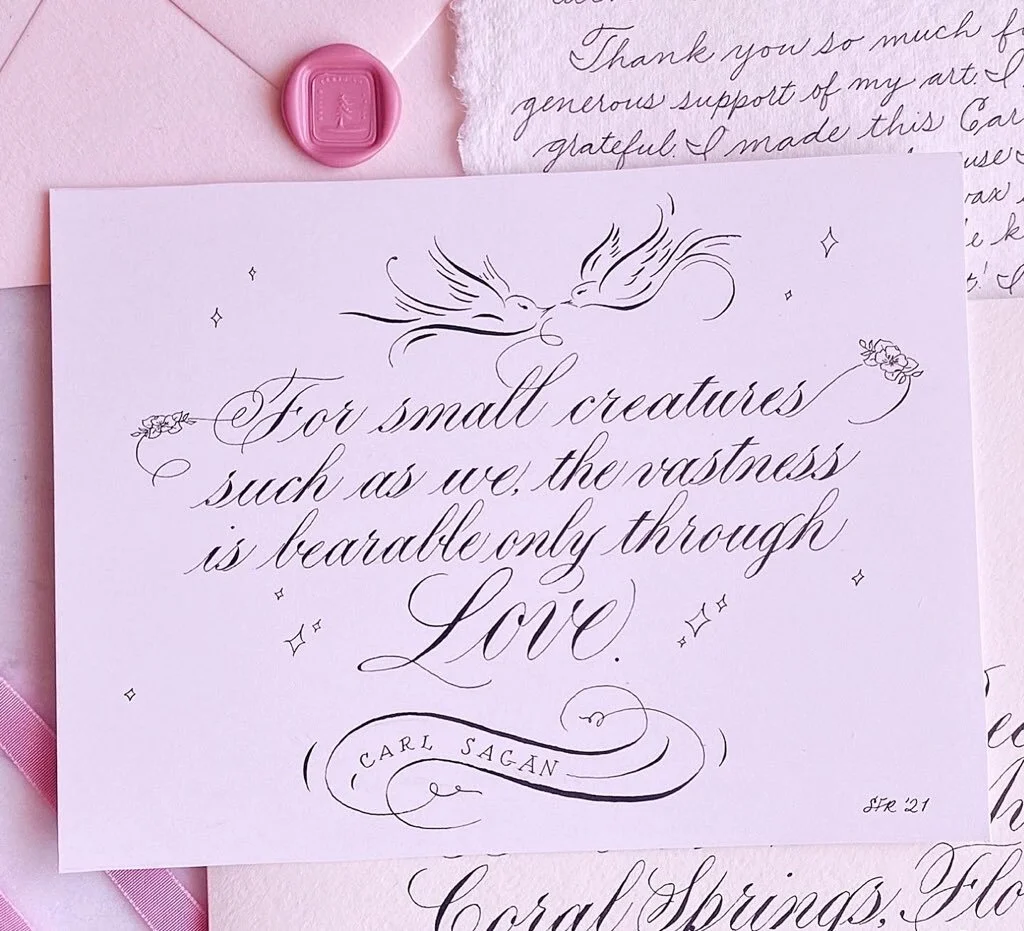 Thank you so much
generous support of my art. I
grateful. I made this
For small creatures
such as we, the vastness
is bearable only through
Love.
CARL SAGAN
SFR '21
Coral Springs,